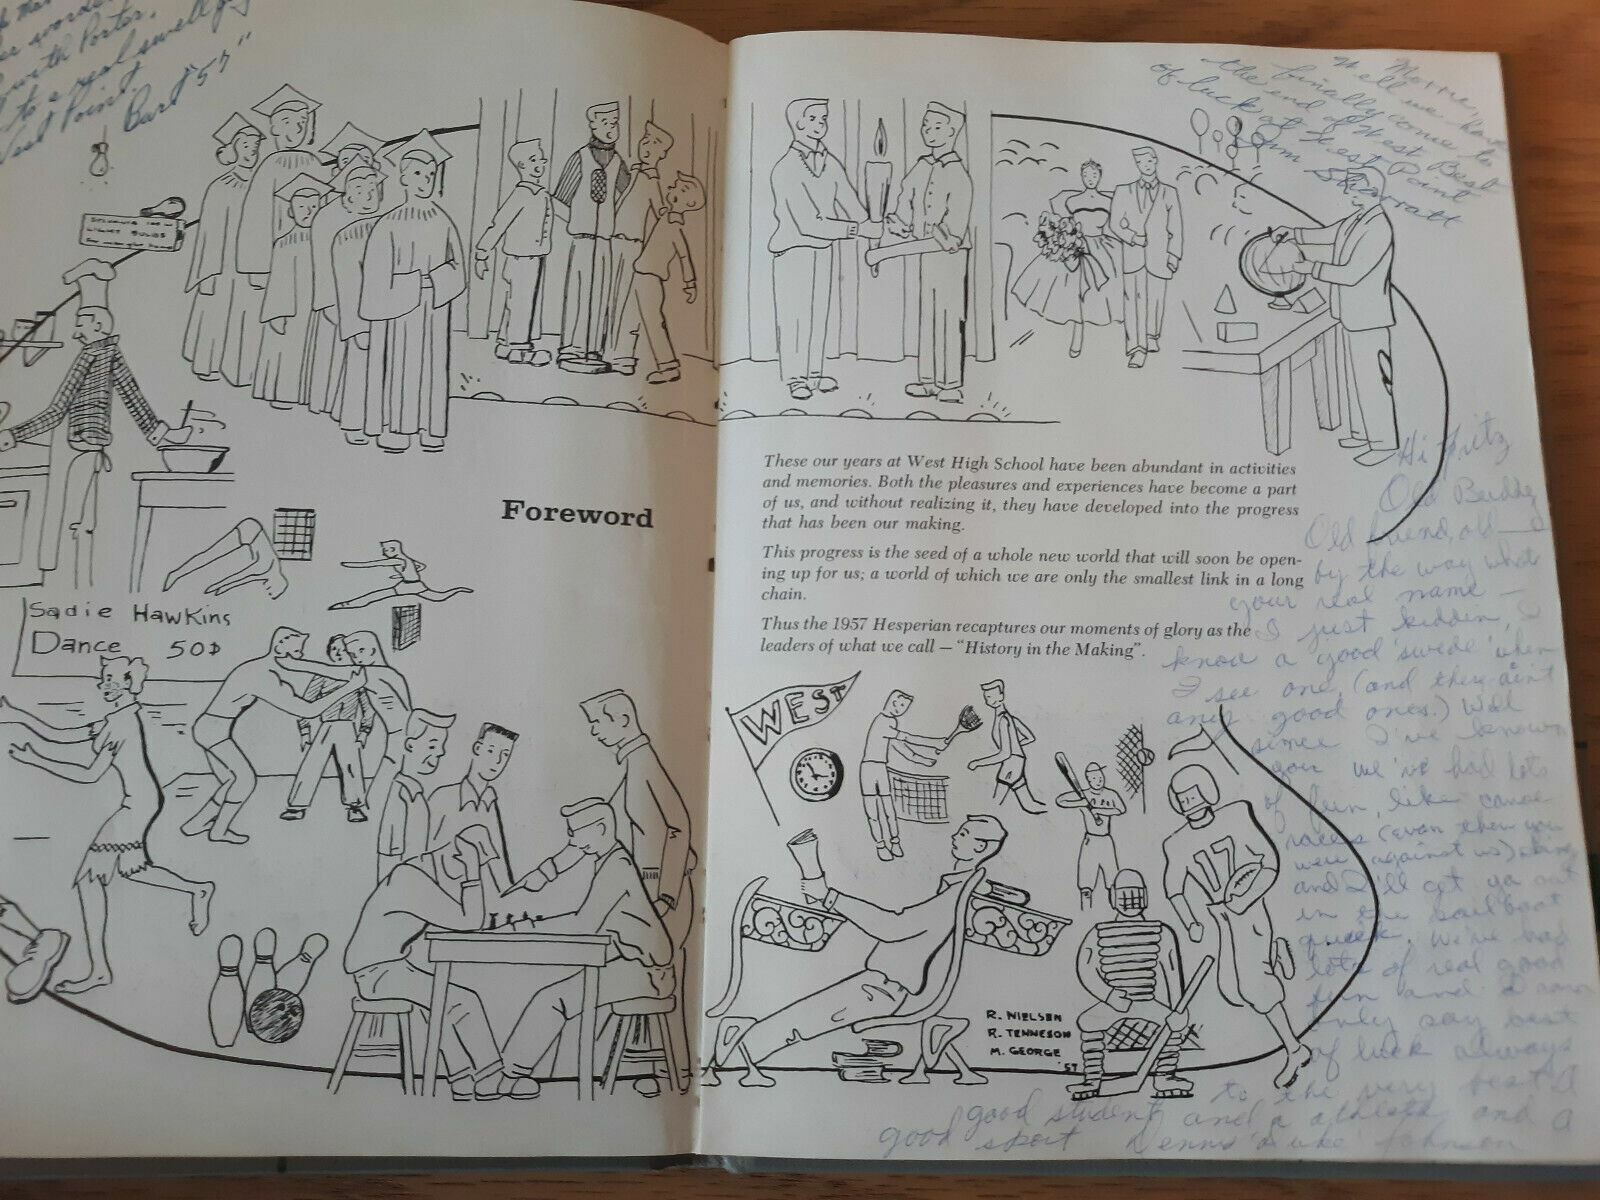 to a real swell guy
West Point.
Bart "57"
Morrie,
Well we have
finally come to
the end of West Best
of luck at West Point
John Sharratt
LIGHT BULBS
Foreword
Sadie Hawkins
Dance 50¢
These our years at West High School have been abundant in activities
and memories. Both the pleasures and experiences have become a part
of us, and without realizing it, they have developed into the progress
that has been our making.
This progress is the seed of a whole new world that will soon be open-
ing up for us; a world of which we are only the smallest link in a long
chain.
Thus the 1957 Hesperian recaptures our moments of glory as the
leaders of what we call — "History in the Making".
WEST
17
R. NIELSEN
R. TENNESON
M. GEORGE
'57
Hi Fritz
Old Buddy
Old friend, old — I
by the way what
your real name —
I just kiddin, I
know a good 'swede' when
I see one, (and they ain't
any good ones.) Well
since I've known
you we've had lots
of fun, like canoe
races (even then you
were against us)
and I'll get ya out
in the sailboat
quick. We've had
lots of real good
fun and I can
only say best
of luck always
to the very best a
good student and a athlete and a
good sport Dennis 'Duke' Johnson